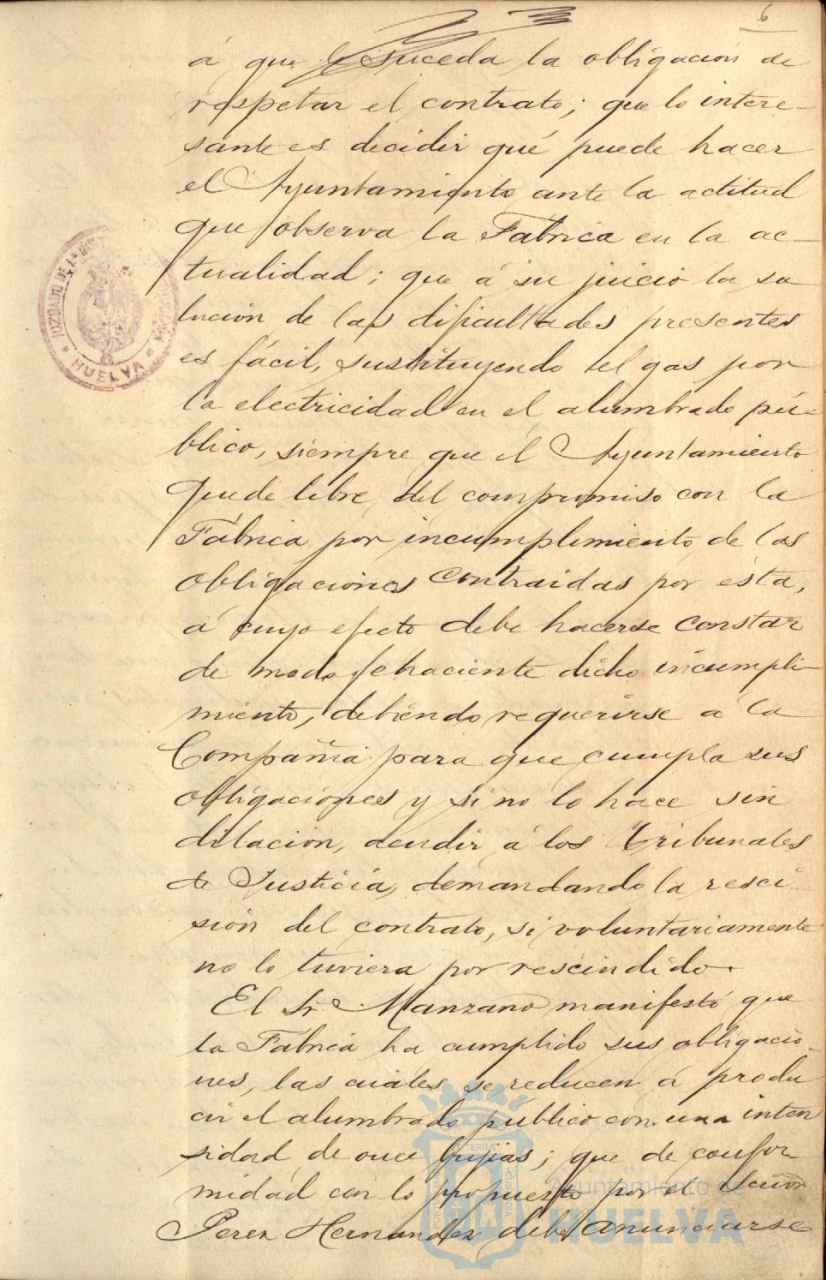 6
á que le suceda la obligacion de
respetar el contrato; que lo intere-
sante es decidir qué puede hacer
el Ayuntamiento ante la actitud
que observa la Fábrica en la ac-
tualidad; que á su juicio la so
lucion de las dificultades presentes
es fácil, sustituyendo el gas por
la electricidad en el alumbrado pú-
blico, siempre que el Ayuntamiento
quede libre del compromiso con la
Fábrica por incumplimiento de las
obligaciones contraidas por ésta,
á cuyo efecto debe hacerse constar
de modo fehaciente dicho incumpli-
miento, debiendo requerirse á la
Compañia para que cumpla sus
obligaciones y si no lo hace sin
dilación, acudir á los Tribunales
de Justicia, demandando la resci-
sión del contrato, si voluntariamente
no lo tuviera por rescindido.
El Sr. Manzano manifestó que
la Fábrica ha cumplido sus obligacio-
nes, las cuales se reducen á produ
cir el alumbrado público con una inten
sidad de once bujias; que de confor
midad con lo propuesto por el señor
Perez Hernandez debe anunciarse
JUZGADO DE 1ª
HUELVA
Ayuntamiento de
HUELVA